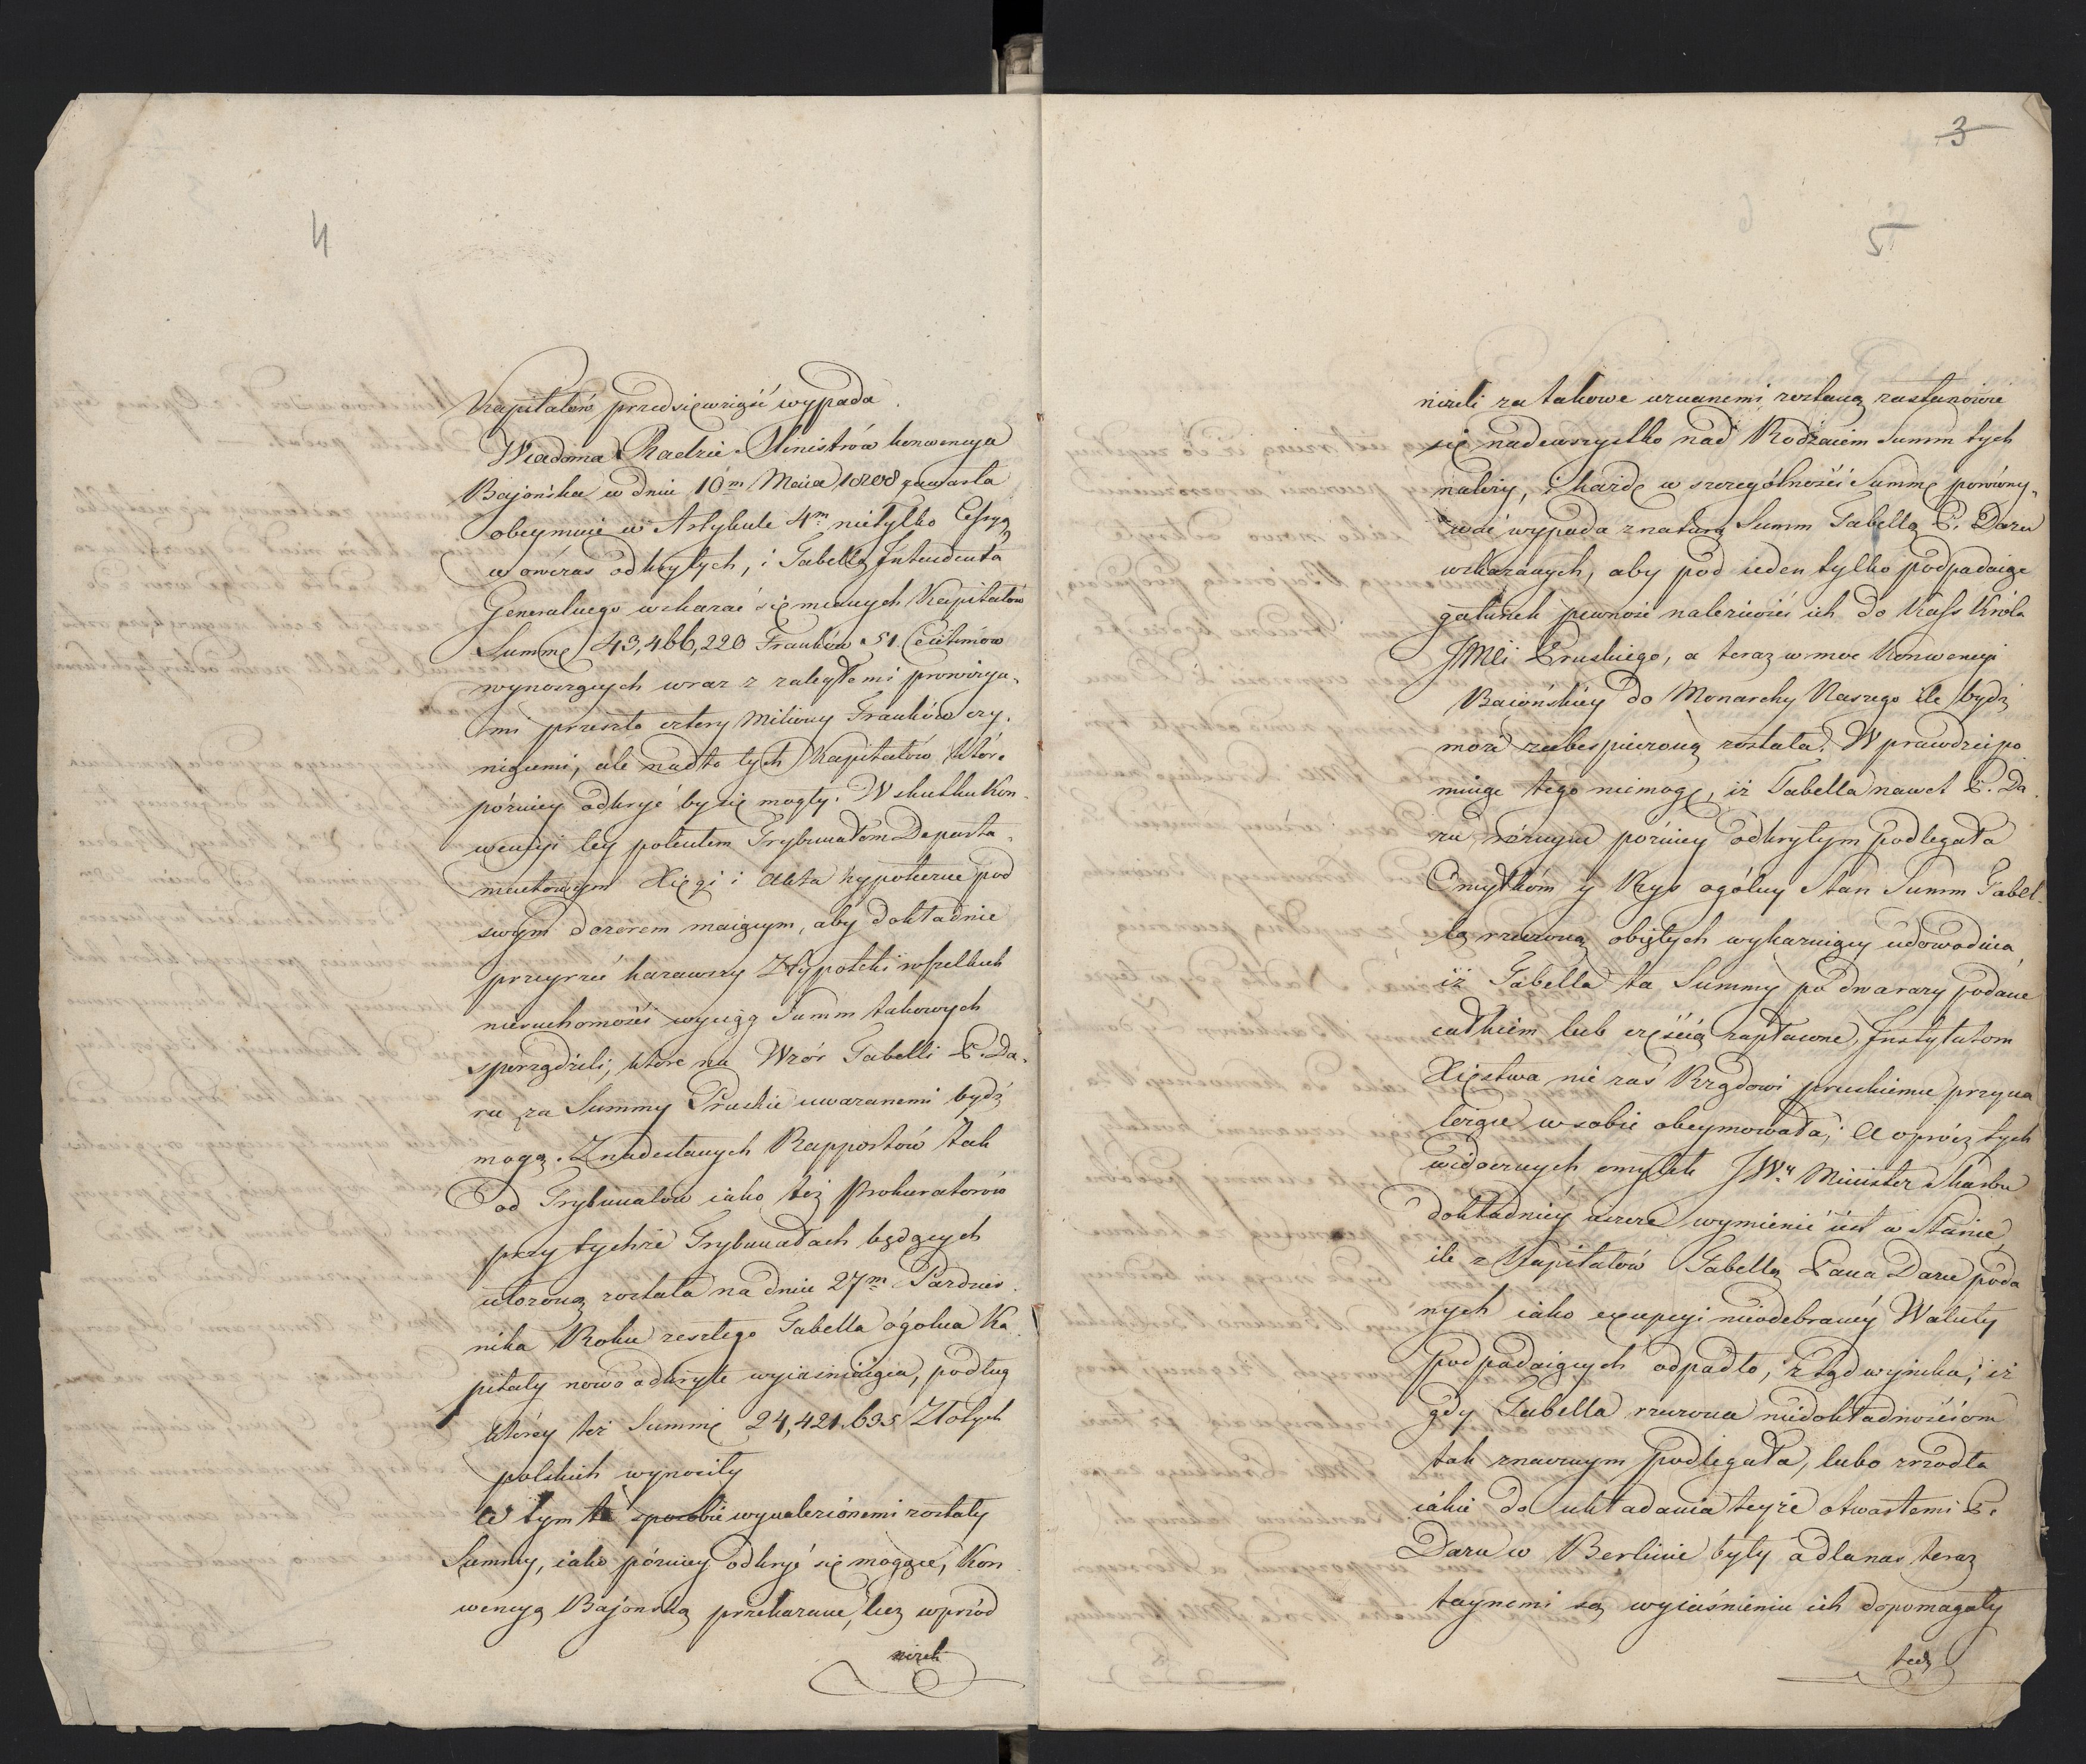 4
Kapitałów przedsięwziąść wypada.
Wiadoma Radzie Ministrów konwencya
Bajońska w dniu 10m Maia 1808 zawarta
obeymuie w Artykule 4m nietylko Cessyą
wówczas odkrytych, i Tabellą Intendenta
Generalnego wskazać się mianych Kapitałów
Summę 43,466,220 Franków 51 Centimów
wynoszących wraz z zaległemi prowizya-
mi przeszło cztery Miliony Franków czy-
niącemi, ale nadto tych Kapitałów które
pózniey odkryć by się mogły. W skutku Kon-
wencyi tey poleciłem Trybunałom Departa-
mentowym Xięgi i Akta hypoteczne pod
swym dozorem maiącym, aby dokładnie
przeyrzeć kazawszy Hypoteki wszelkich
nieruchomości wyciąg Summ takowych
sporządzili, które na Wzór Tabelli P. Da-
ru za Summy Pruskie uwazanemi bydź
mogą. Z nadesłanych Rapportów tak
od Trybunałów iako też Prokuratorów
przy tychże Trybunałach będących
ułozoną została na dniu 27m Pazdzier-
nika Roku zeszłego Tabella ogólna Ka-
pitały nowo odkryte wyiaśniaiąca, podług
którey też Summę 24,421,635 Złotych
polskich wynosiły
W tym to sposobie wynalezionemi zostały
Summy, iako pózniey odkryć się mogące, Kon-
wencyą Bajonską przekazane, lecz wprzód
nizeli
3
5
nizeli za takowe uznanemi zostaną zastanowić
się nadewszystko nad Rodzaiem Summ tych
należy, i każdę w szczególności Summę porówny-
wać wypada z naturą Summ Tabellą P. Daru
wskazanych, aby pod ieden tylko podpadaiąc
gatunek pewność należności ich do Kass Króla
JMCi Pruskiego, a teraz w moc Konwencyi
Baiońskiey do Monarchy Naszego ile bydź
może zabespieczoną została. Wprawdzie po
minąć tego niemogę, iż Tabella nawet P. Da
ru róznym pózniey odkrytym podlegała
Omyłkóm y Rys ogólny Stan Summ Tabel-
lą rzeczoną obiętych wykazuiący udowadnia
iż Tabella ta Summy po dwa razy podane
całkiem lub częścią zapłacone, Instytutom
Xięstwa nie zaś Rządowi pruskiemu przyna
leżące w sobie obeymowała; A oprócz tych
widocznych omyłek JW. Minister Skarbu
dokładniey ieszcze wymienić iest w Stanie,
ile z Kapitałów Tabellą Pana Daru poda
nych iako excepcyi nieodebraney Waluty
podpadaiących odpadło, ztąd wynika, iż
gdy Tabella rzeczona niedokładnościom
tak znacznym podlegała, lubo zrzodła
iakie do układania teyże otwartemi P.
Daru w Berlinie były a dla nas teraz
taynemi są wyiaśnieniu ich dopomagały
tedy